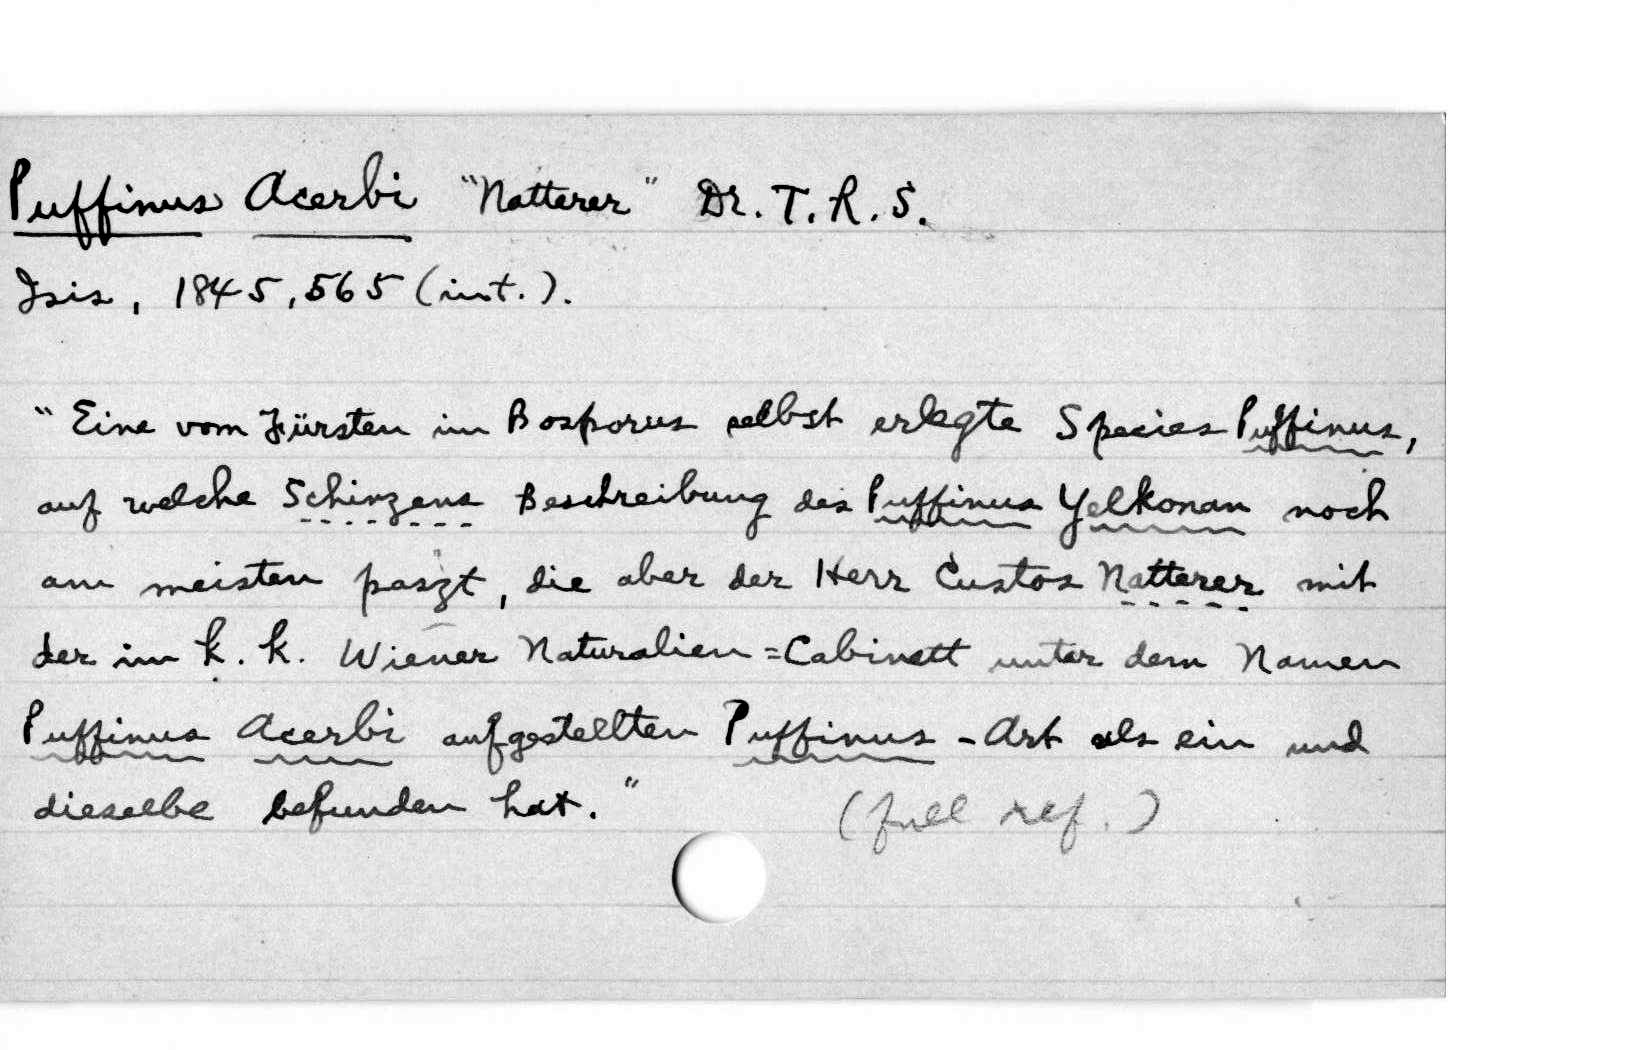 Puffinus Acerbi "Natterer" Dr. T. R. S.
Isis, 1845, 565 (int.).
"Eine vom Fürsten im Bosporus selbst erlegte Species Puffinus,
auf welche Schinzens Beschreibung des Puffinus Yelkonan noch
am meisten paszt, die aber der Herr Custos Natterer mit
der im k. k. Wiener Naturalien=Cabinett unter dem Namen
Puffinus Acerbi aufgestellten Puffinus-Art als ein und
dieselbe befunden hat."
(full ref.)